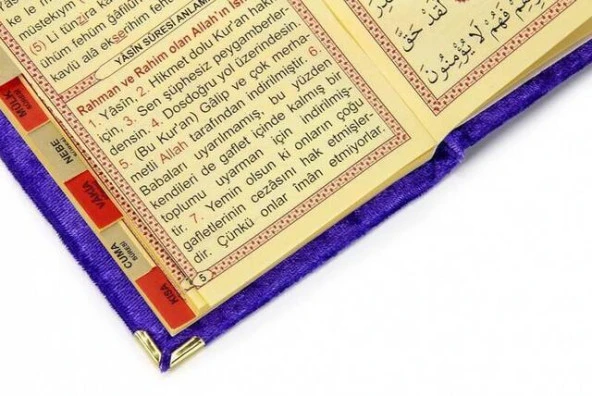 müstekıym
(5) Li tünzira
ühüm fehüm ğafilûn
kavlü alâ ekserihim fehüm
YASİN SÛRESİ ANLAMI
Rahman ve Rahim olan Allah'ın
1. Yâsin, 2. Hikmet dolu Kur'an hakkı
için, 3. Sen şüphesiz peygamberler-
densin. 4. Dosdoğru yol üzerindesin.
5. (Bu Kur'an) Gâlip ve çok merha-
metli Allah tarafından indirilmiştir. 6.
Babaları uyarılmamış, bu yüzden
kendileri de gaflet içinde kalmış bir
toplumu uyarman için indirilmiş-
tir. 7. Yemin olsun ki onların çoğu
gafletlerinin cezâsını hak etmişler-
dir. Çünkü onlar imân etmiyorlar.
5
لَقَدْ حَقَّ
فَهُمْ لَا يُؤْمِنُونَ
MÜLK
SÛRESİ
NEBE
VAKIA
CUMA
SÛRESİ
KISA